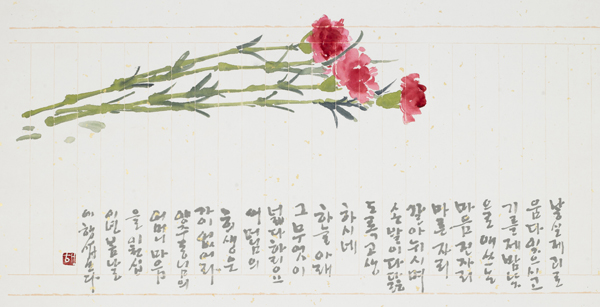 낳실제괴로
움다잊으시고
기를제밤낮
으로애쓰는
마음진자리
마른자리
갈아뉘시며
손발이다닳
도록고생
하시네
하늘아래
그무엇이
넓다하리오
희생은
가이없어라
양주동님의
어머니마음
을
봄날
쓰다